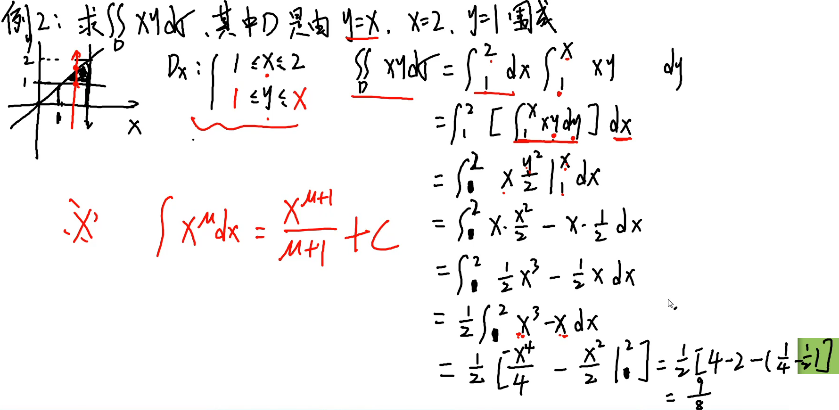 例2: 求∬_D xydσ, 其中D是由 y=x. x=2. y=1围成
y
2
1
1 2
x
Dx: { 1≤x≤2
1≤y≤x
∬_D xydσ = ∫_1^2 dx ∫_1^x xy dy
= ∫_1^2 [∫_1^x xydy] dx
= ∫_1^2 x y²/2 |_1^x dx
= ∫_1^2 x·x²/2 - x·1/2 dx
= ∫_1^2 1/2 x³ - 1/2 x dx
= 1/2 ∫_1^2 x³-x dx
= 1/2 [x⁴/4 - x²/2 |_1^2] = 1/2 [4-2-(1/4-1/2)]
= 9/8
※ ∫x^μdx = x^(μ+1)/(μ+1) + C